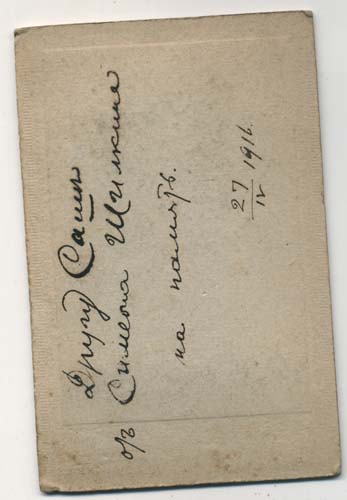 Другу Саше
отъ Симеона Шилкина
на память.
27/IV 1916.